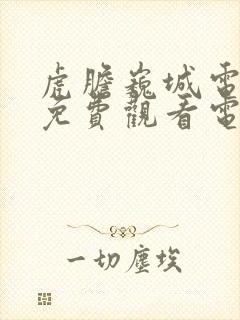 虎膽巍城電
免費觀看電
一切塵埃